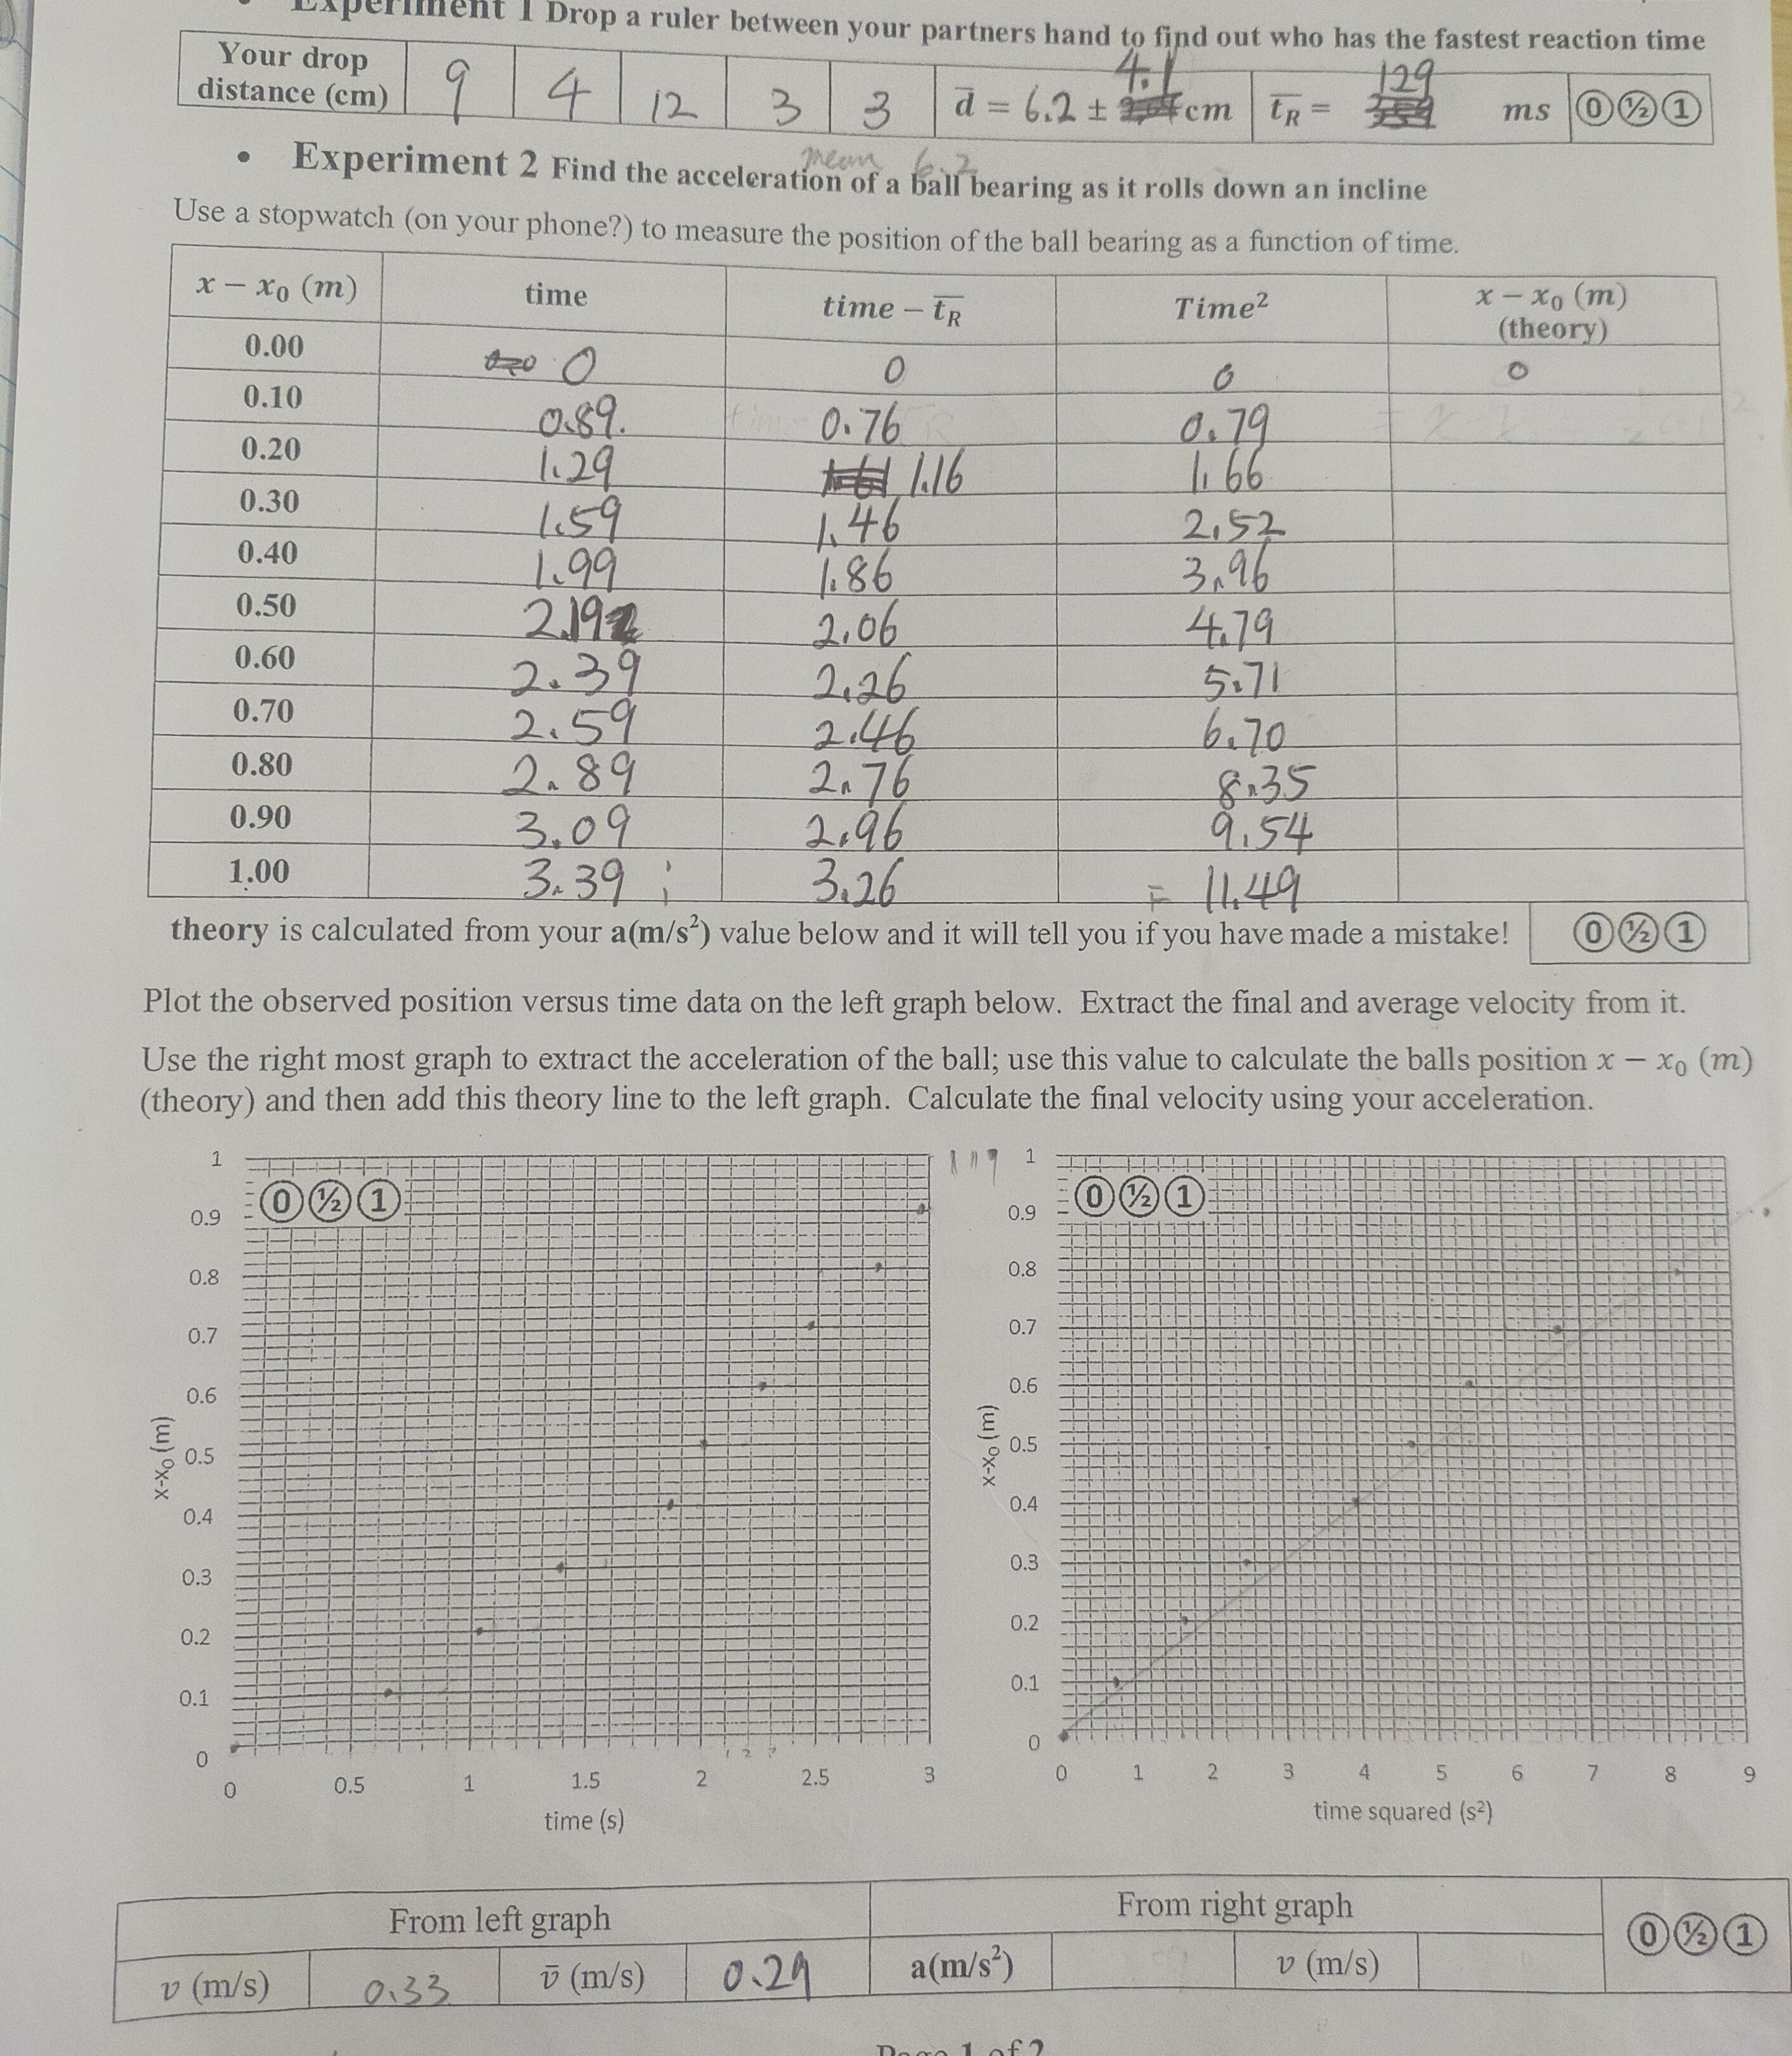 Experiment 1 Drop a ruler between your partners hand to find out who has the fastest reaction time
Your drop distance (cm) 9 4 12 3 3 d̅ = 6.2 ± 4.1 cm t̅R = 129 ms 0 ½ 1
mean 6.2
• Experiment 2 Find the acceleration of a ball bearing as it rolls down an incline
Use a stopwatch (on your phone?) to measure the position of the ball bearing as a function of time.
x − x₀ (m) time time − t̅R Time² x − x₀ (m) (theory)
0.00 0 0 0 0
0.10 0.89. 0.76 0.79
0.20 1.29 1.16 1.66
0.30 1.59 1.46 2.52
0.40 1.99 1.86 3.96
0.50 2.19 2.06 4.79
0.60 2.39 2.26 5.71
0.70 2.59 2.46 6.70
0.80 2.89 2.76 8.35
0.90 3.09 2.96 9.54
1.00 3.39 3.26 = 11.49
theory is calculated from your a(m/s²) value below and it will tell you if you have made a mistake! 0 ½ 1
Plot the observed position versus time data on the left graph below. Extract the final and average velocity from it.
Use the right most graph to extract the acceleration of the ball; use this value to calculate the balls position x − x₀ (m)
(theory) and then add this theory line to the left graph. Calculate the final velocity using your acceleration.
1
0 ½ 1
0.9
0.8
0.7
0.6
0.5
0.4
0.3
0.2
0.1
0
x-x₀ (m)
0 0.5 1 1.5 2 2.5 3
time (s)
1
0 ½ 1
0.9
0.8
0.7
0.6
0.5
0.4
0.3
0.2
0.1
0
x-x₀ (m)
0 1 2 3 4 5 6 7 8 9
time squared (s²)
From left graph From right graph 0 ½ 1
v (m/s) 0.33 v̅ (m/s) 0.29 a(m/s²) v (m/s)
Page 1 of 2